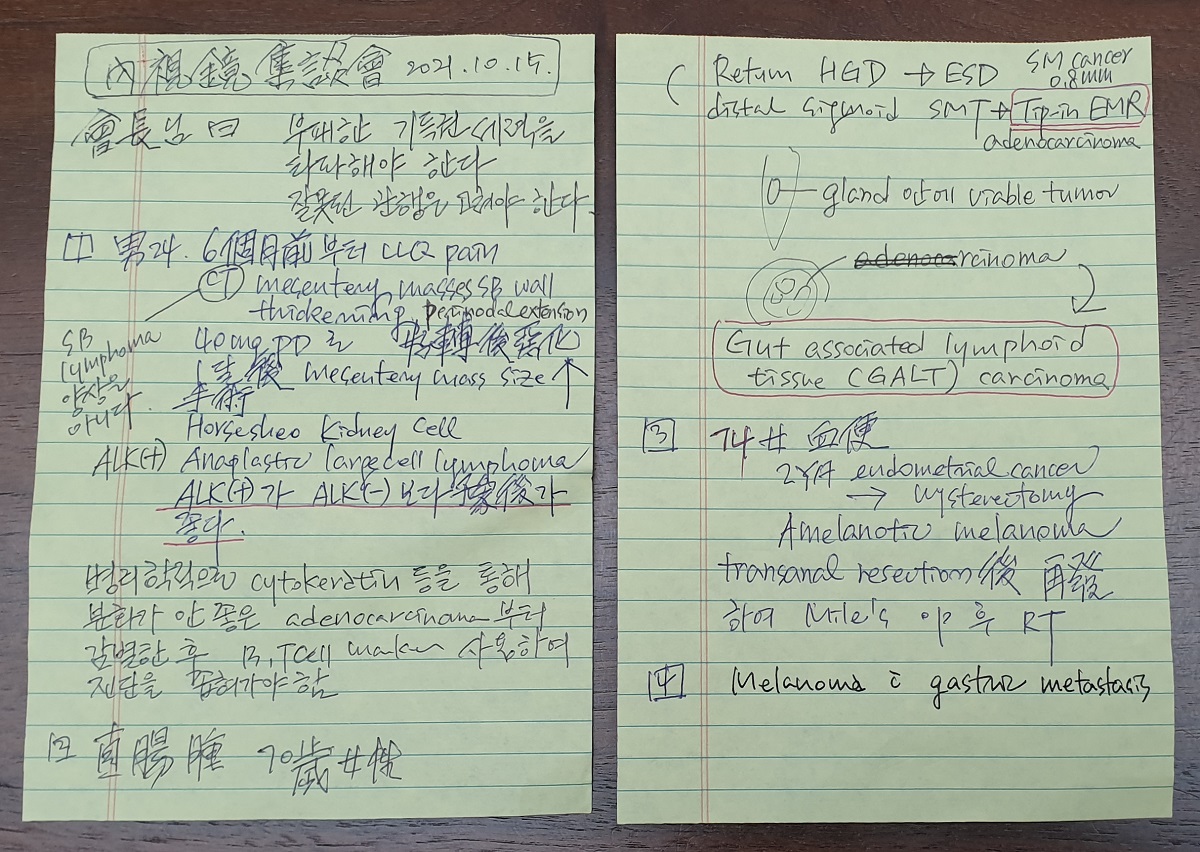 內視鏡集談會 2021.10.15.
會長님 曰 부패한 기득권 세력을
타파해야 한다
잘못된 관행은 고쳐야 한다.
1 男24. 6個月前부터 LLQ pain
CT mesentery masses SB wall
thickening, perinodal extension
SB lymphoma 양상은 아니다.
40mg PD로 好轉後惡化
後 mesentery mass size ↑
手術
Horseshoe Kidney Cell
ALK(+) Anaplastic large cell lymphoma
ALK(+)가 ALK(-)보다 豫後가
좋다.
병리학적으로 cytokeratin 등을 통해
분화가 안 좋은 adenocarcinoma부터
감별한 후 B, T cell marker 사용하여
진단을 좁혀가야 함
2 直腸腫 70歲 女性
( Retum HGD → ESD SM cancer
0.8mm
distal sigmoid SMT → Tip-in EMR
adenocarcinoma
gland 안에 viable tumor
adenocarcinoma
Gut associated lymphoid
tissue (GALT) carcinoma
3 74女 血便
2年前 endometrial cancer
→ hysterectomy
Amelanotic melanoma
transanal resection 後 再發
하여 Mile's op 후 RT
4 Melanoma c̄ gastric metastasis